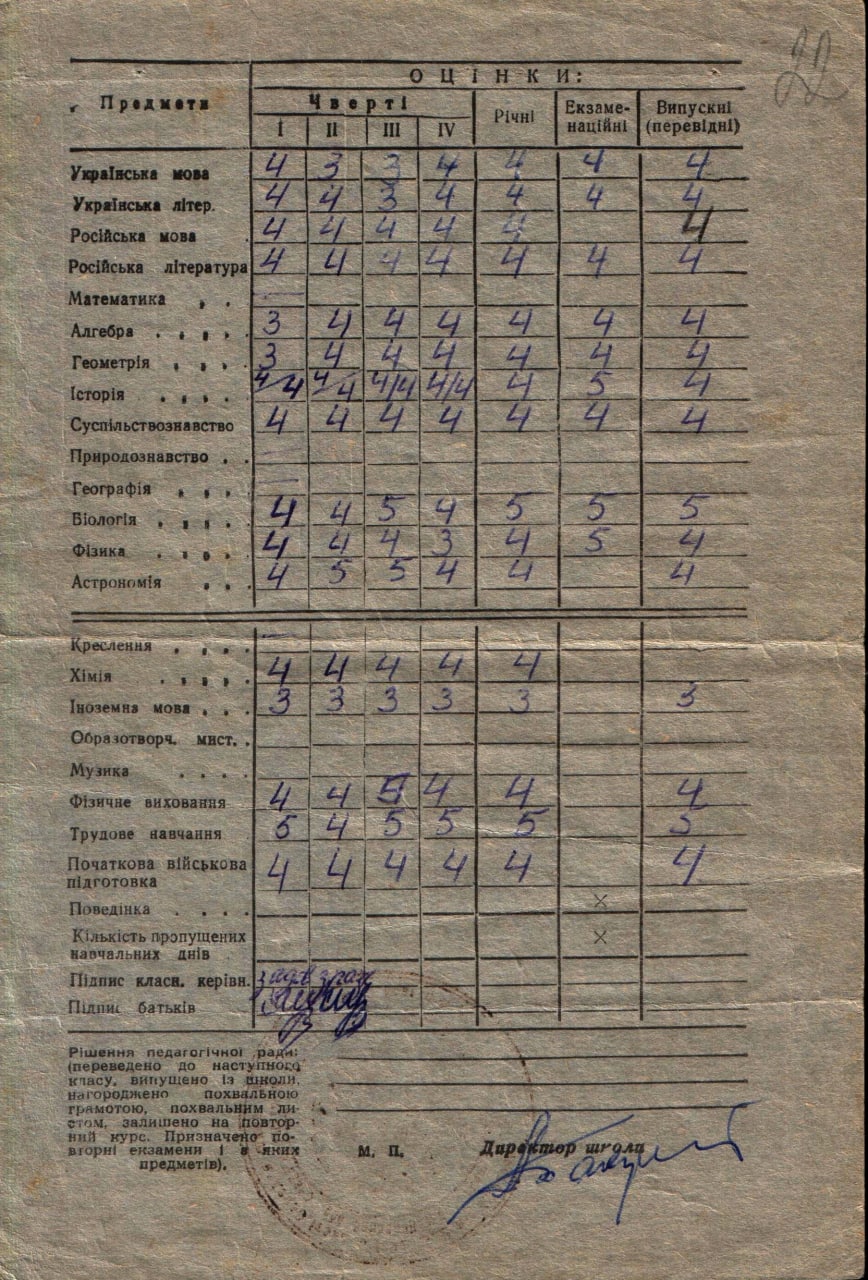 22
ОЦІНКИ:
Предмети Чверті Річні Екзаме-национні Випускні (перевідні)
I II III IV
Українська мова 4 3 3 4 4 4 4
Українська літер. 4 4 3 4 4 4 4
Російська мова . 4 4 4 4 4 4
Російська література 4 4 4 4 4 4 4
Математика , .
Алгебра . , , , . 3 4 4 4 4 4 4
Геометрія , , , . 3 4 4 4 4 4 4
Історія , , , . 4/4 4/4 4/4 4/4 4 5 4
Суспільствознавство 4 4 4 4 4 4 4
Природознавство . .
Географія , , , .
Біологія , , , . 4 4 5 4 5 5 5
Фізика . , , , . 4 4 4 3 4 5 4
Астрономія . . . 4 5 5 4 4 4
Креслення , , , .
Хімія . , , , . 4 4 4 4 4
Іноземна мова . . . 3 3 3 3 3 3
Образотворч. мист. .
Музика . . . .
Фізичне виховання 4 4 5 4 4 4
Трудове навчання 5 4 5 5 5 5
Початкова військова
підготовка 4 4 4 4 4 4
Поведінка . . . . ×
Кількість пропущених ×
навчальних днів
Підпис класн. керівн.
Підпис батьків
Рішення педагогічної ради:
(переведено до наступного
класу, випущено із школи,
нагороджено похвальною
грамотою, похвальним ли-
стом, залишено на повтор-
ний курс. Призначено по-
вторні екзамени і з яких
предметів).
М. П. Директор школи